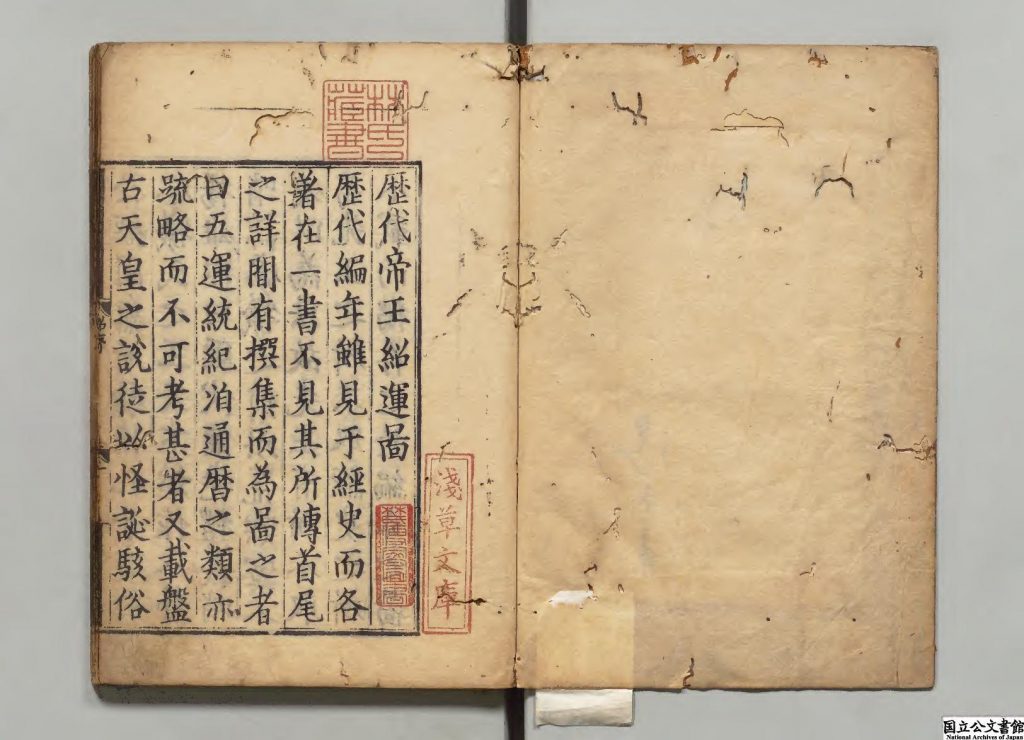 歷代帝王紹運啚
歷代編年雖見于經史而各
著在一書不見其所傳首尾
之詳閒有撰集而為啚之者
曰五運統紀洎通曆之類亦
䟽略而不可考甚者又載盤
古天皇之說徒以怪誕駭俗
林氏
藏書
淺草文庫
国立公文書館
National Archives of Japan